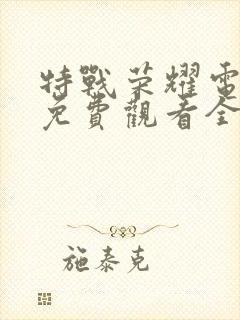 特戰荣耀電
免費觀看全
施泰克